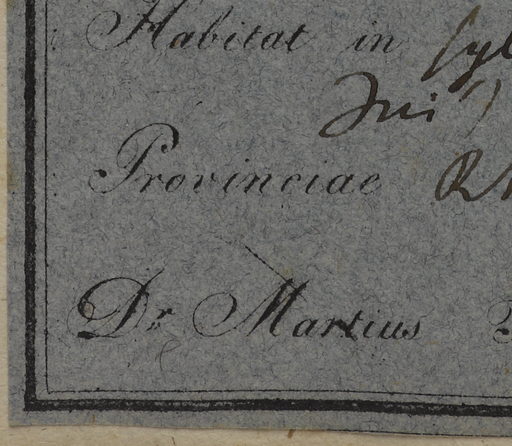 Habitat in syl
Provinciae
Dr Martius